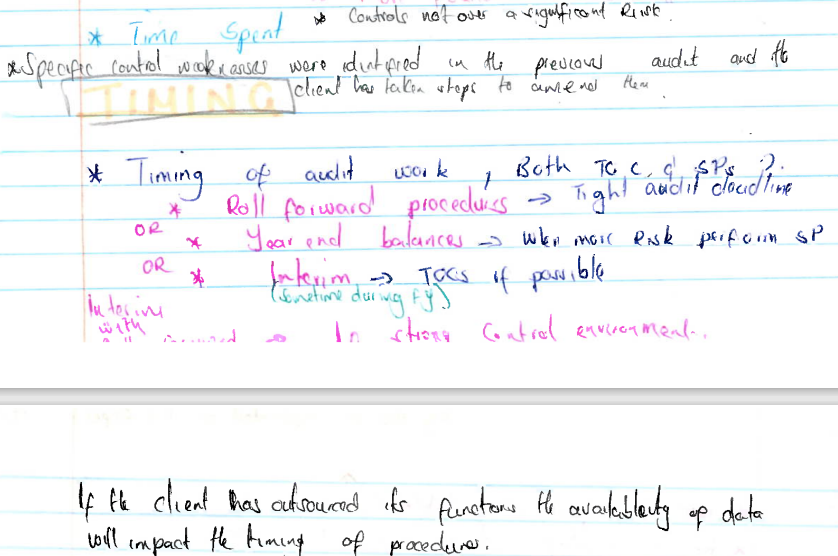 * Controls not over a significant Risk.
* Time Spent
* Specific control weaknesses were identified in the previous audit and the
client has taken steps to amend them.
TIMING
* Timing of audit work, Both TOC, & SPs ?.
* Roll forward procedures → Tight audit deadline
OR
* Year end balances → when more Risk perform SP
OR
* Interim → TOCs if possible
(sometime during FY)
Interim
with
→ In strong Control environment.
If the client has outsourced its functions the availability of data
will impact the timing of procedures.